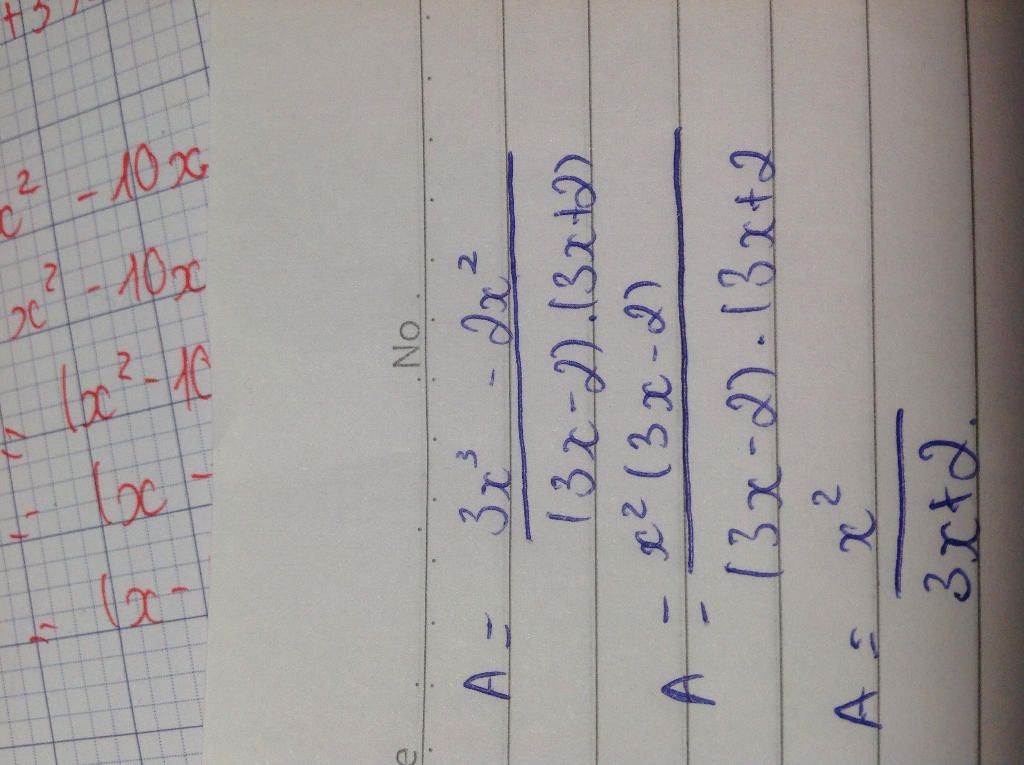 +3
x² - 10x
x² - 10x
= (x² - 10
= (x -
= (x -
No
e
A = 3x³ - 2x²
(3x-2).(3x+2)
A = x² (3x-2)
(3x-2).(3x+2
A = x²
3x+2.